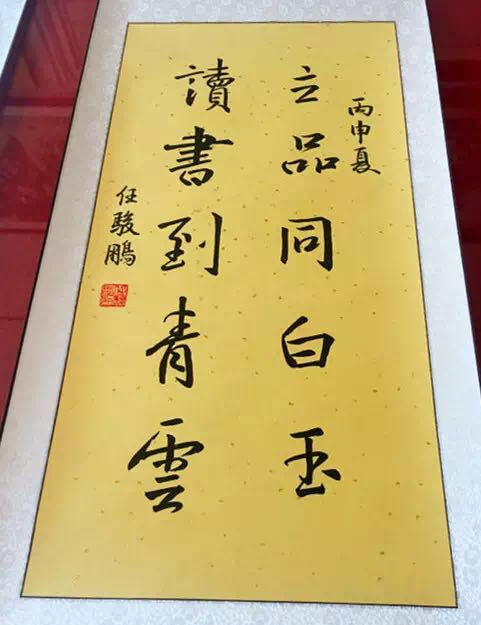 丙申夏
立品同白玉
讀書到青雲
任駿鵬